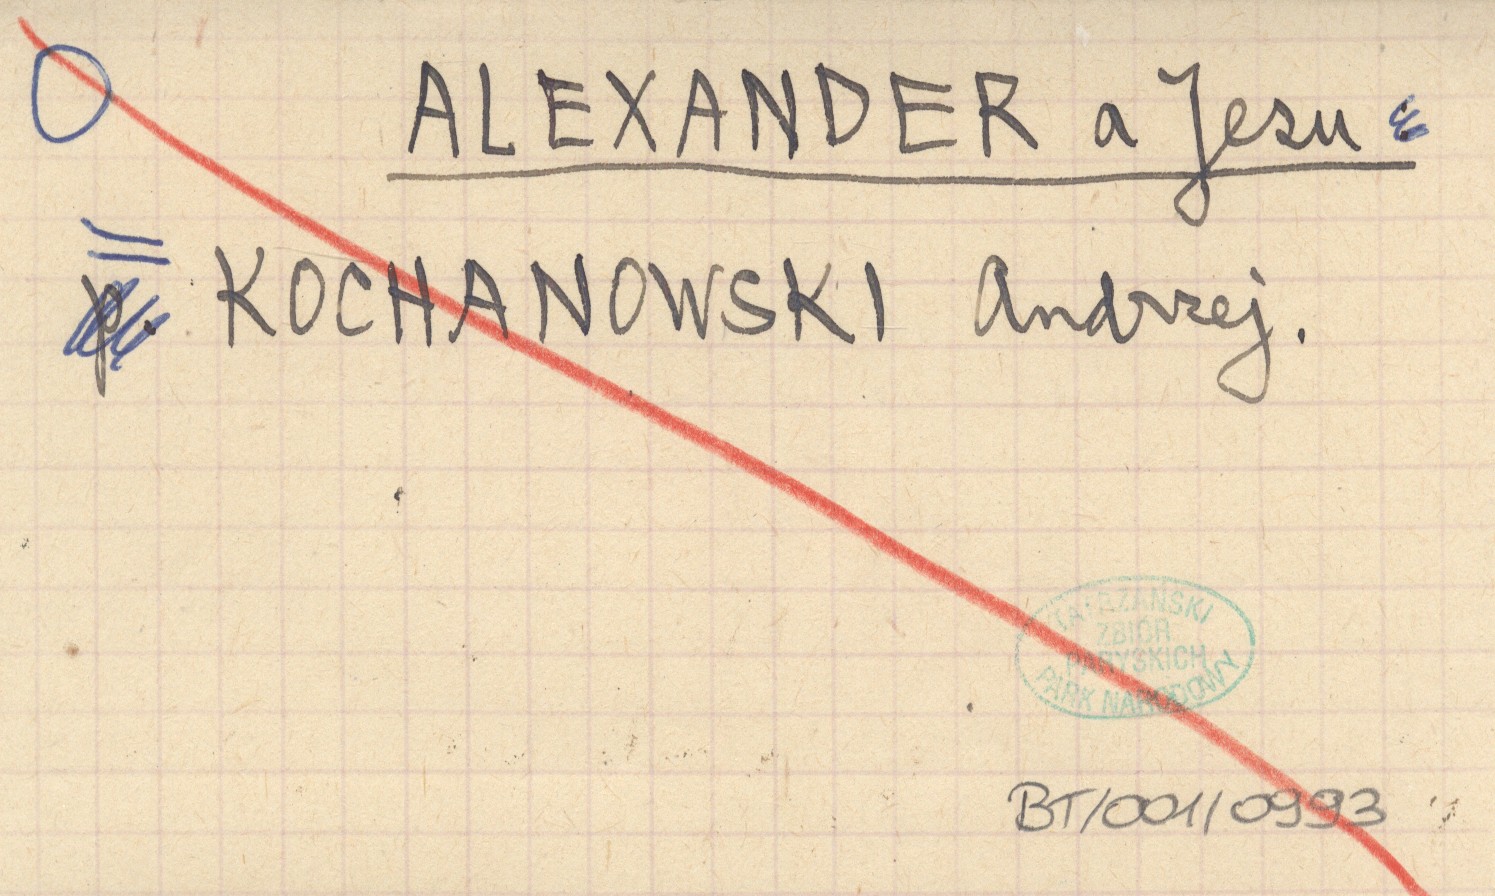 ALEXANDER a Jesu
= KOCHANOWSKI Andrzej.
TATRZAŃSKI
ZBIÓR
PARYSKICH
PARK NARODOWY
BT/001/0993